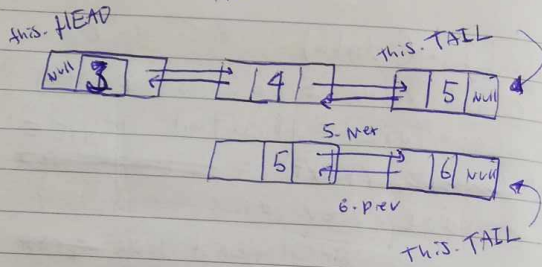 this.HEAD
this.TAIL
Null 3 4 5 Null
5.nex
5 6 Null
6.prev
This.TAIL